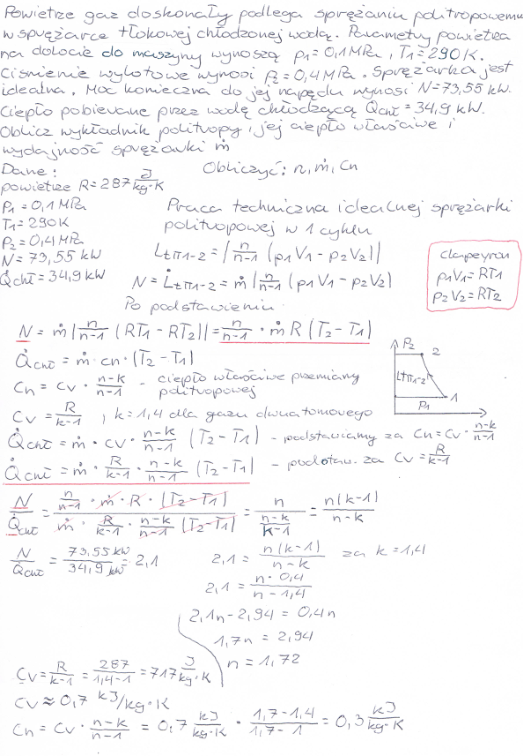 Powietrze gaz doskonały podlega sprężaniu politropowemu
w sprężarce tłokowej chłodzonej wodą. Parametry powietrza
na dolocie do maszyny wynoszą p1=0,1MPa, T1=290K.
Ciśnienie wylotowe wynosi p2=0,4MPa. Sprężarka jest
idealna. Moc konieczna do jej napędu wynosi N=73,55 kW.
Ciepło pobierane przez wodę chłodzącą Q̇chł=34,9 kW.
Oblicz wykładnik politropy, jej ciepło właściwe i
wydajność sprężarki ṁ
Dane:
Obliczyć: n, ṁ, cn
powietrze R=287 J/kg·K
P1=0,1 MPa
T1=290K
P2=0,4 MPa
N=73,55 kW
Q̇chł=34,9 kW
Praca techniczna idealnej sprężarki
politropowej w 1 cyklu
Ltπ1-2 = |n/n-1 (p1V1 - p2V2)|
N = L̇tπ1-2 = ṁ |n/n-1 (p1V1 - p2V2)|
Clapeyron
p1V1=RT1
p2V2=RT2
Po podstawieniu
N = ṁ |n/n-1 (RT1 - RT2)| = n/n-1 · ṁ R (T2-T1)
Q̇chł = ṁ · cn · (T2-T1)
Cn = Cv · n-k/n-1 - ciepło właściwe przemiany
politropowej
Cv = R/k-1, k=1,4 dla gazu dwuatomowego
P2
2
Ltπ1-2
P1
1
Q̇chł = ṁ · cv · n-k/n-1 (T2-T1) - podstawiamy za Cn=Cv · n-k/n-1
Q̇chł = ṁ · R/k-1 · n-k/n-1 (T2-T1) - podstaw. za Cv=R/k-1
N/Q̇chł = n/n-1 · ṁ · R · (T2-T1) / ṁ · R/k-1 · n-k/n-1 (T2-T1) = n / n-k/k-1 = n(k-1)/n-k
N/Q̇chł = 73,55 kW/34,9 kW = 2,1
2,1 = n(k-1)/n-k za k=1,4
2,1 = n·0,4/n-1,4
2,1n-2,94 = 0,4n
1,7n = 2,94
n = 1,72
Cv = R/k-1 = 287/1,4-1 = 717 J/kg·K
Cv ≈ 0,7 kJ/kg·K
Cn = Cv · n-k/n-1 = 0,7 kJ/kg·K · 1,7-1,4/1,7-1 = 0,3 kJ/kg·K